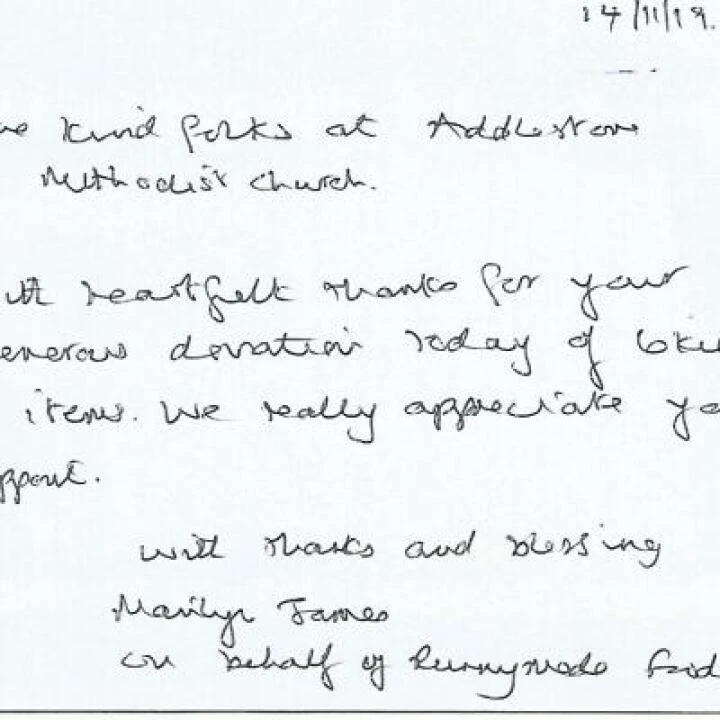 14/11/19.
kind folks at Addlestone
Methodist Church.
heartfelt thanks for your
donation today of 6kg
items. We really appreciate
with thanks and blessing
Marilyn James
on behalf of Runnymede